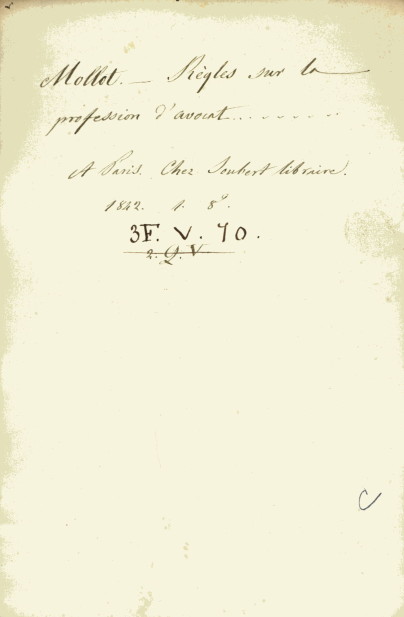 Mollot. — Règles sur la
profession d'avocat.........
A Paris. Chez Joubert libraire.
1842. 1. 8º.
3F. V. 70.
2. Q. V
C